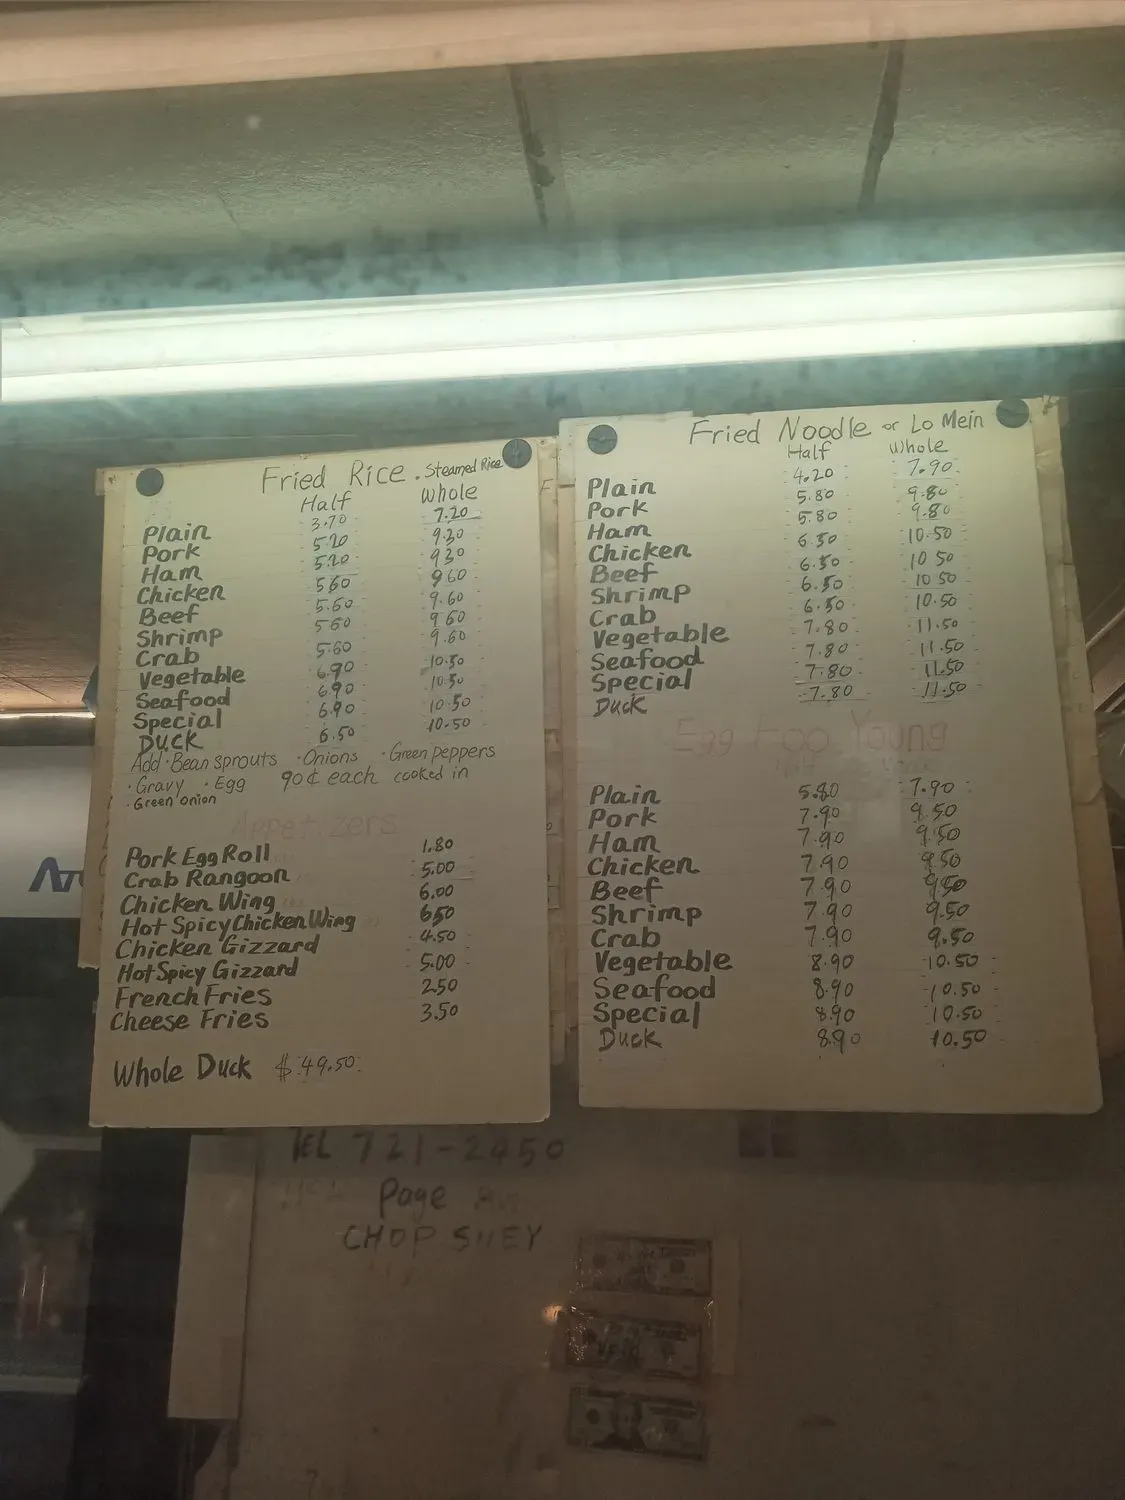 Fried Rice . Steamed Rice
Half Whole
Plain 3.70 7.20
Pork 5.20 9.30
Ham 5.20 9.30
Chicken 5.60 9.60
Beef 5.60 9.60
Shrimp 5.60 9.60
Crab 5.60 9.60
Vegetable 6.90 10.50
Seafood 6.90 10.50
Special 6.90 10.50
Duck 6.50 10.50
Add · Bean sprouts · Onions · Green peppers
· Gravy · Egg 90¢ each cooked in
· Green onion
Appetizers
Pork Egg Roll 1.80
Crab Rangoon 5.00
Chicken Wing 6.00
Hot Spicy Chicken Wing 6.50
Chicken Gizzard 4.50
Hot Spicy Gizzard 5.00
French Fries 2.50
Cheese Fries 3.50
Whole Duck $ 49.50
Fried Noodle or Lo Mein
Half Whole
Plain 4.20 7.90
Pork 5.80 9.80
Ham 5.80 9.80
Chicken 6.50 10.50
Beef 6.50 10 50
Shrimp 6.50 10 50
Crab 6.50 10.50
Vegetable 7.80 11.50
Seafood 7.80 11.50
Special 7.80 11.50
Duck 7.80 11.50
Egg Foo Young
Plain 5.80 7.90
Pork 7.90 9.50
Ham 7.90 9.50
Chicken 7.90 9.50
Beef 7.90 9.50
Shrimp 7.90 9.50
Crab 7.90 9.50
Vegetable 8.90 10.50
Seafood 8.90 10.50
Special 8.90 10.50
Duck 8.90 10.50
TEL 721-2450
Page
CHOP SUEY